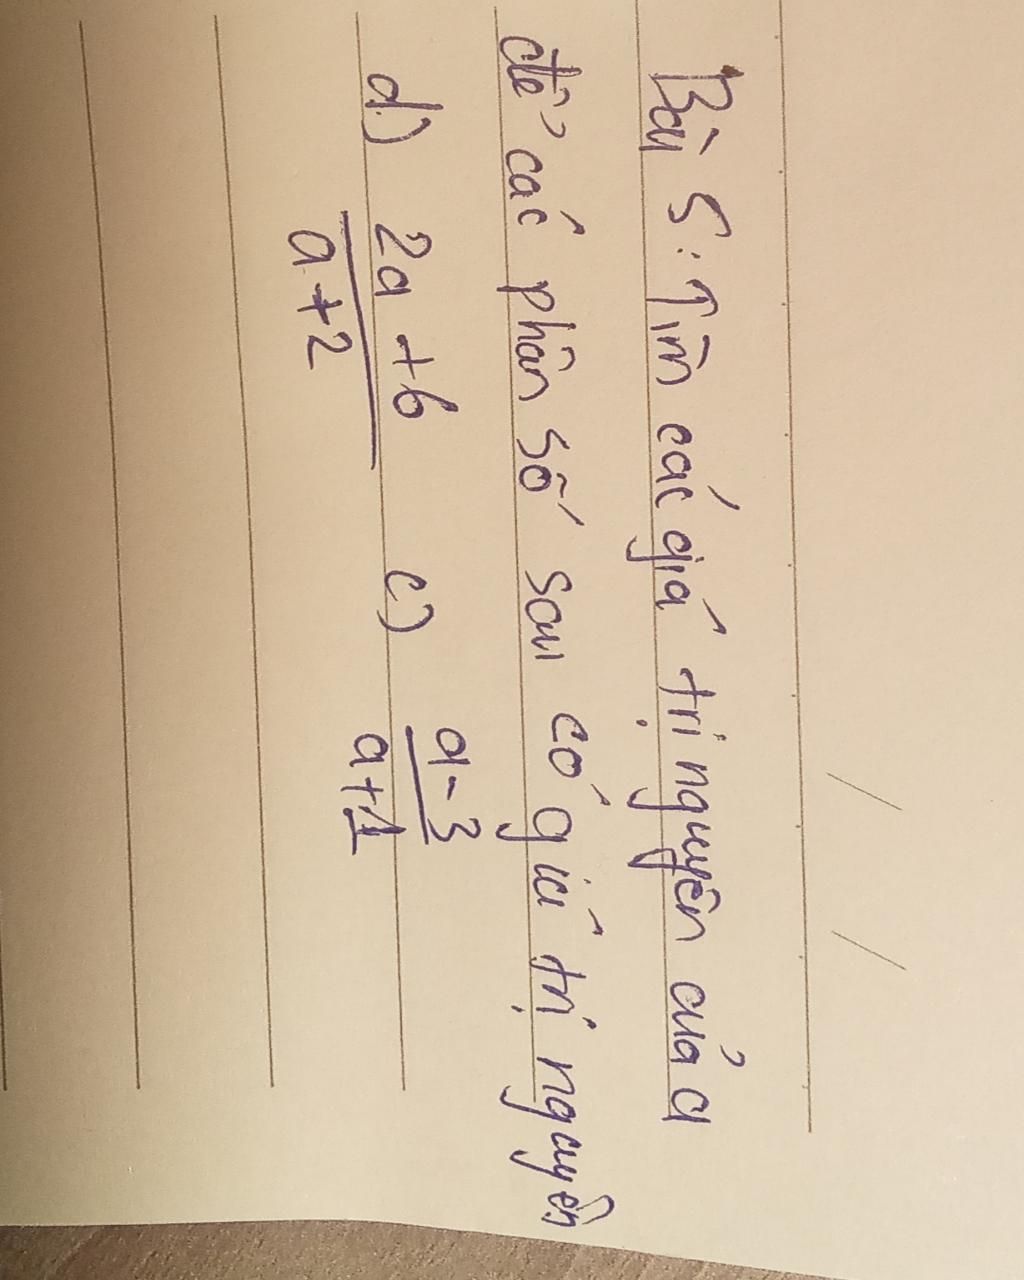 Bài 5: Tìm các giá trị nguyên của a
để các phân số sau có giá trị nguyên
d.) 2a + 6 / a + 2 c) a - 3 / a + 1